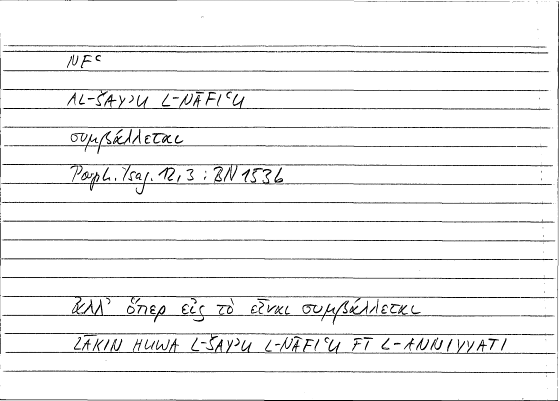 NFᶜ
AL-ŠAYʾU L-NĀFIᶜU
συμβάλλεται
Porph. Isag. 12, 3 : BN 153b
ἀλλ' ὅπερ εἰς τὸ εἶναι συμβάλλεται
LĀKIN HUWA L-ŠAYʾU L-NĀFIᶜU FĪ L-ANNIYYATI